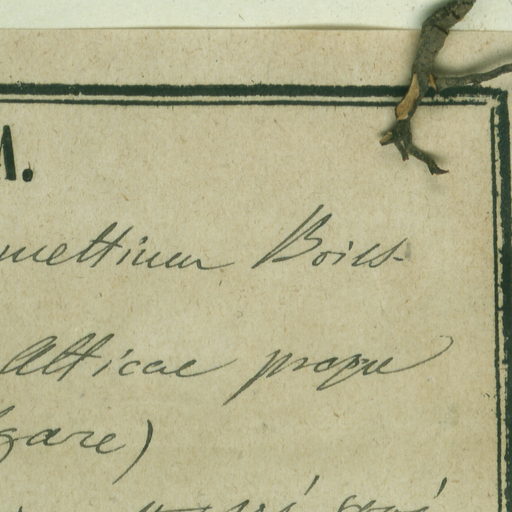 M.
mettinum Boiss.
Atticae prope
gare)